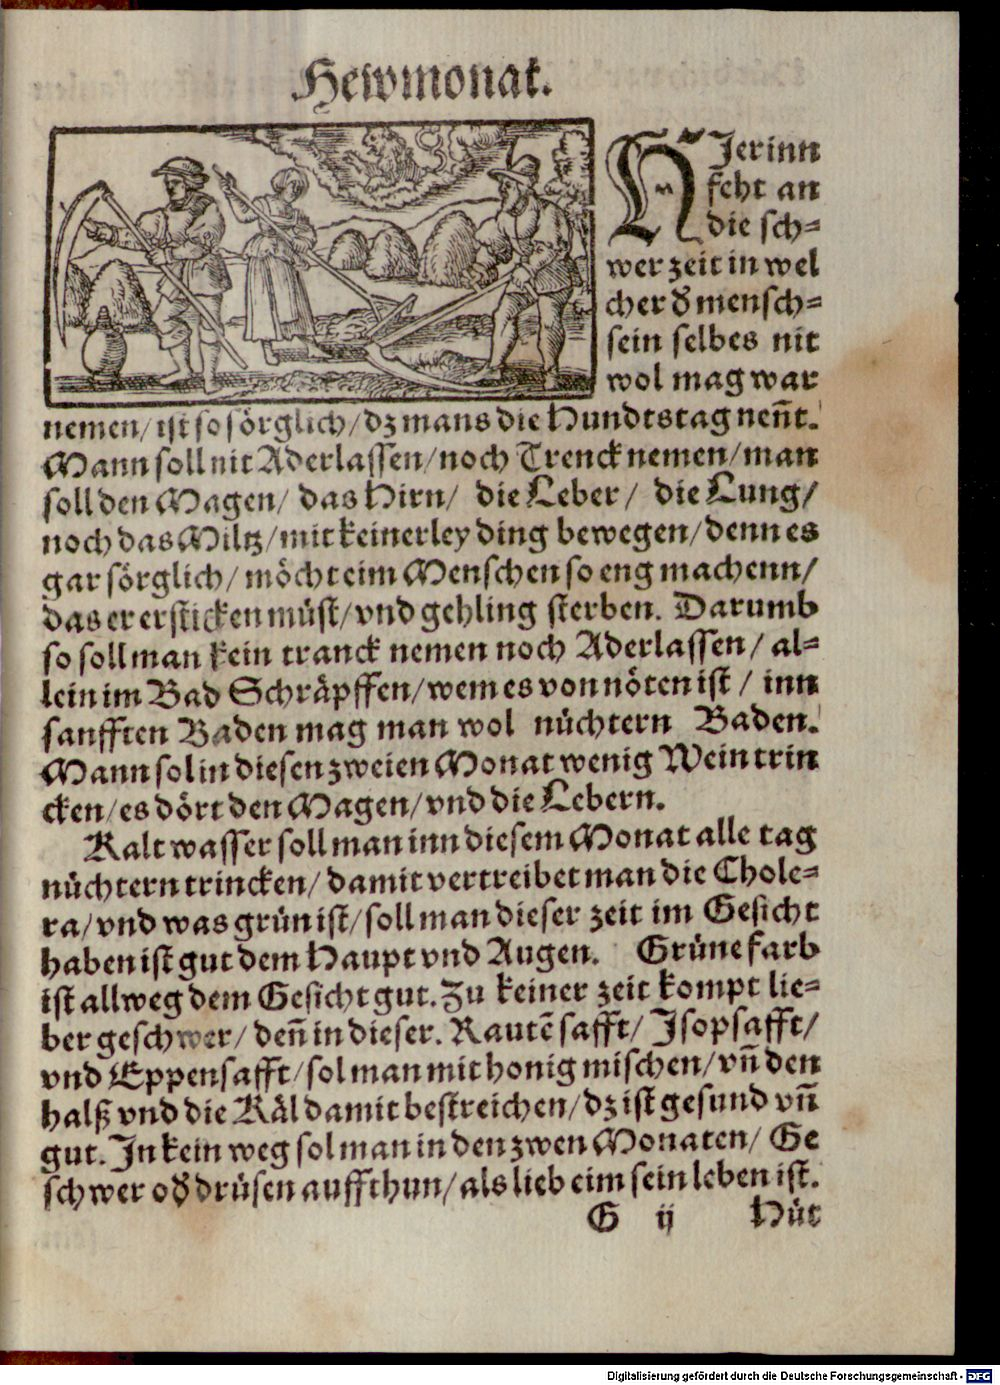 Hewmonat.
HJerinn
feht an
die sch-
wer zeit in wel
cher d̕ mensch-
sein selbes nit
wol mag war
nemen/ ist so sörglich/ dz mans die Hundtstag nen̄t.
Mann soll nit Aderlassen/ noch Tranck nemen/ man
soll den Magen/ das Hirn/ die Leber/ die Lung/
noch das Miltz/ mit keinerley ding bewegen/ denn es
gar sörglich/ möcht eim Menschen so eng machenn/
das er ersticken müst/ vnd gehling sterben. Darumb
so soll man kein tranck nemen noch Aderlassen/ al-
lein im Bad Schräpffen/ wem es von nöten ist/ inn
sanfften Baden mag man wol nüchtern Baden.
Mann sol in diesen zweien Monat wenig Wein trin
cken/ es dört den Magen/ vnd die Lebern.
Kalt wasser soll man inn diesem Monat alle tag
nüchtern trincken/ damit vertreibet man die Chole-
ra/ vnd was grün ist/ soll man dieser zeit im Gesicht
haben ist gut dem Haupt vnd Augen. Grüne farb
ist allweg dem Gesicht gut. Zu keiner zeit kompt lie-
ber geschwer/ den̄ in dieser. Rautē safft/ Jsopsafft/
vnd Eppensafft/ sol man mit honig mischen/ vn̄ den
halß vnd die Käl damit bestreichen/ dz ist gesund vn̄
gut. Jn kein weg sol man in den zwen Monaten/ Ge
schwer od̕ drüsen auffthun/ als lieb eim sein leben ist.
G ij Hüt
Digitalisierung gefördert durch die Deutsche Forschungsgemeinschaft - DFG